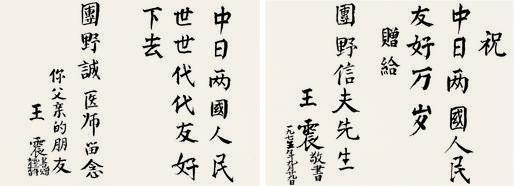 中日两國人民
世世代代友好
下去
團野誠医师留念
你父亲的朋友
王震
祝
中日两國人民
友好万岁
贈給
團野信夫先生
王震敬書
一九七五年九月九日